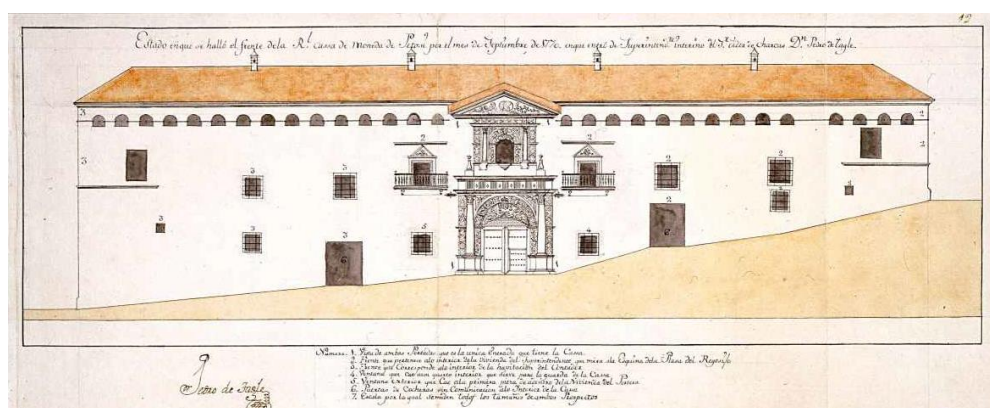 12
Estado en que se halló el frente de la Rl. Cassa de Moneda de Potosi por el mes de Septiembre de 1770, en que entró de Superintendte. interino el Sr. de Charcas Dn. Pedro de Tagle.
Numero. 1. Vista de ambas Portadas que es la unica Entrada que tiene la Cassa.
2. Frente que pertenece alo interior dela vivienda del Superintendente, que mira ala Esquina dela Plasa del Regosijo
3. Frente que Corresponde alo interior dela habitacion del Contador
4. Ventana que cae aun quarto interior que sirve para la guarda de la Cassa
5. Ventana exterior que Cae ala primera piesa de adentro dela Vivienda del
6. Puertas de Cocheras sin Comunicacion alo Interior de la Casa
7. Escala por la qual se miden todos los tamaños de ambos Prospectos
Pedro de Tagle